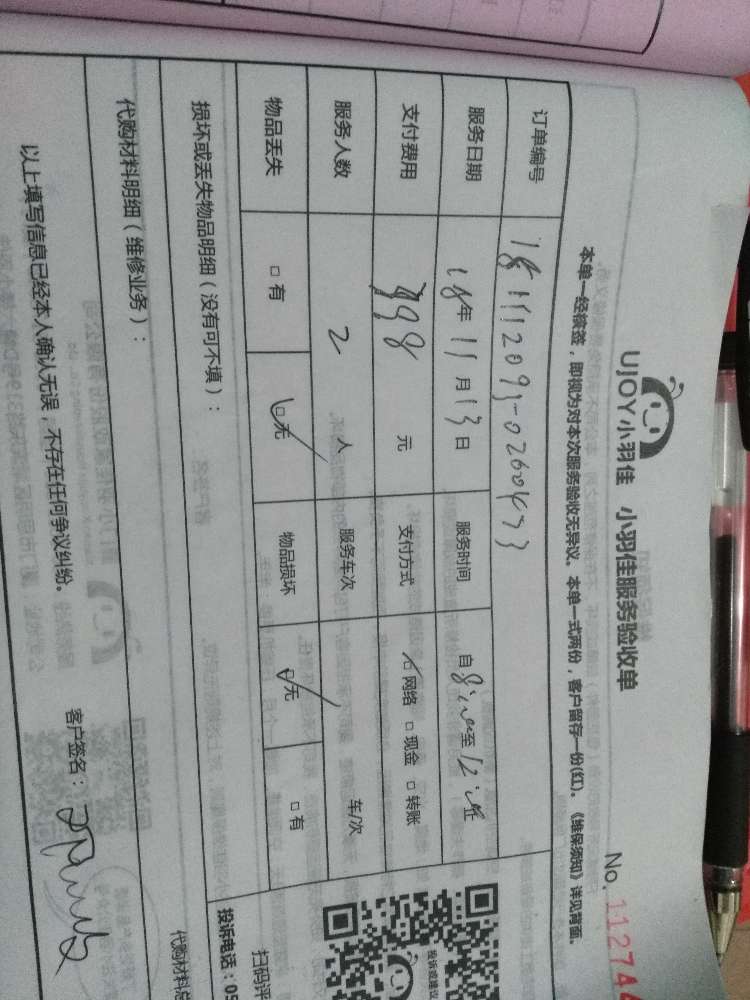 UJOY小羽佳 小羽佳服务验收单
No. 11274
本单一经核签，即视为对本次服务验收无异议。本单一式两份，客户留存一份(红)。《维保须知》详见背面。
订单编号
服务日期 18年 11月 13日 服务时间 自8:00至12:00
支付费用 元 支付方式 网络 □ 现金 □ 转账
服务人数 2 人 服务车次 车/次
物品丢失 □ 有 □ 无 物品损坏 □ 无 □ 有
损坏或丢失物品明细（没有可不填）：
代购材料明细（维修业务）：
代购材料总
以上填写信息已经本人确认无误，不存在任何争议纠纷。 客户签名：
投诉或建议
扫码评
投诉电话：05